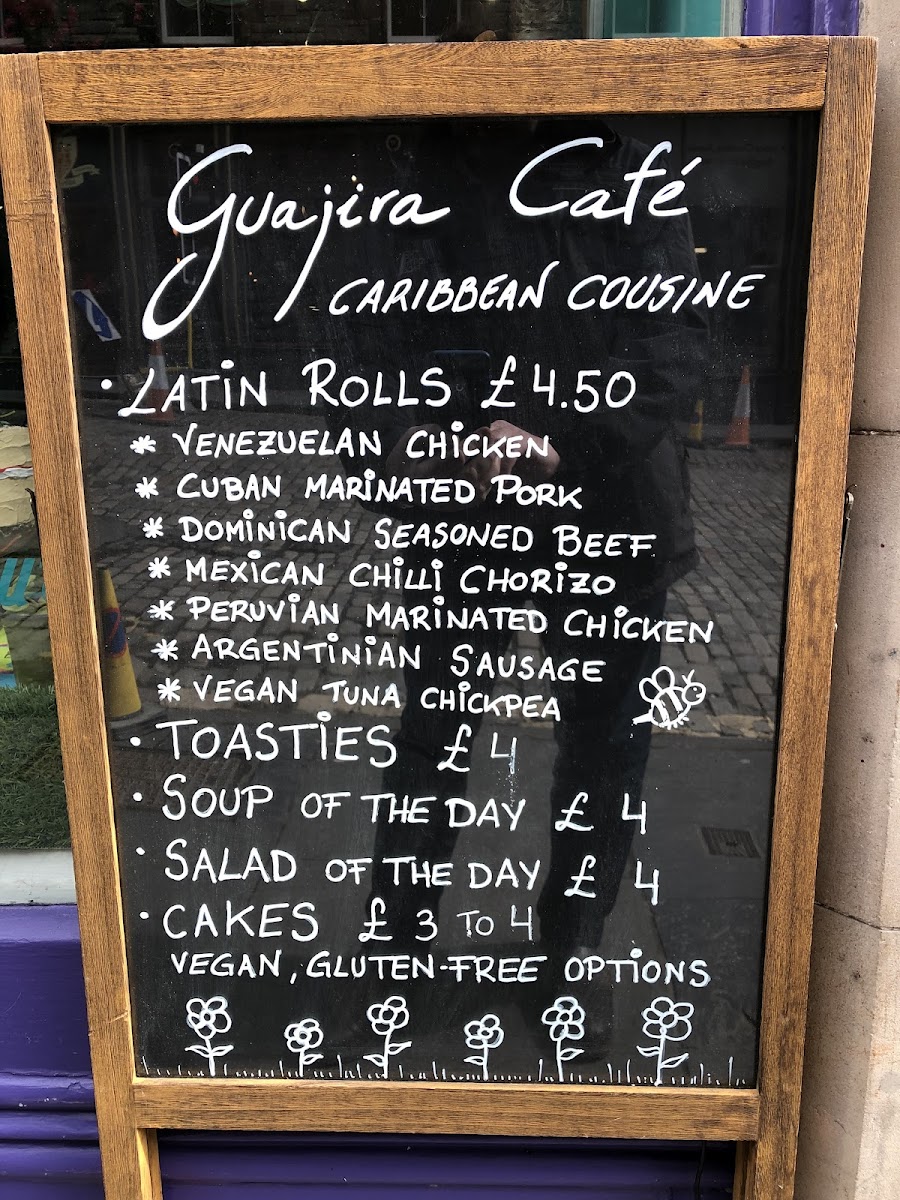 Guajira Café
CARIBBEAN COUSINE
• LATIN ROLLS £4.50
* VENEZUELAN CHICKEN
* CUBAN MARINATED PORK
* DOMINICAN SEASONED BEEF
* MEXICAN CHILLI CHORIZO
* PERUVIAN MARINATED CHICKEN
* ARGENTINIAN SAUSAGE
* VEGAN TUNA CHICKPEA
• TOASTIES £4
• SOUP OF THE DAY £4
• SALAD OF THE DAY £4
• CAKES £3 TO 4
VEGAN, GLUTEN-FREE OPTIONS